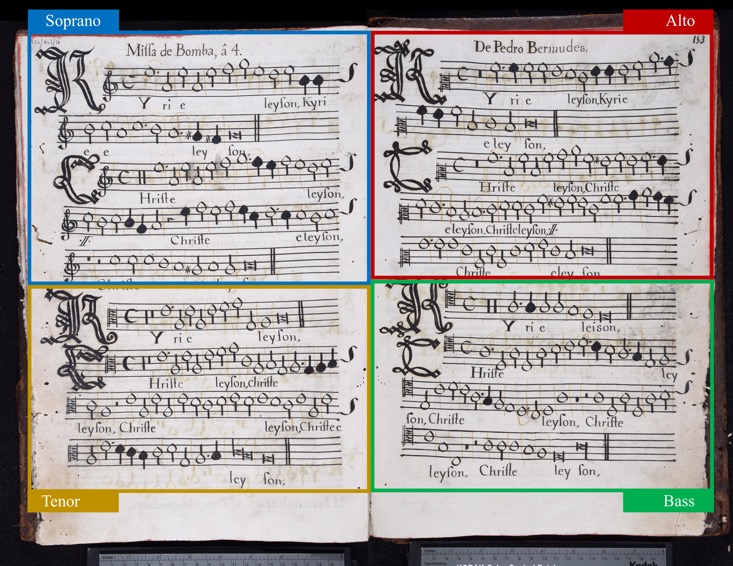 Soprano
Alto
Missa de Bomba, â 4.
KYrie leyson, Kyri
e e ley son,
CHriste leyson,
Christe eleyson,
Christe
De Pedro Bermudes.
153
KYrie leyson, Kyrie
eley son,
CHriste leyson, Christe
eleyson, Christeleyson,
Christe eley son
KYrie leyson,
CHriste leyson, christe
leyson, Christe leyson, Christee
ley son,
KYrie leison,
CHriste ley
son, Christe leyson, Christe
leyson, Christe ley son,
Tenor
Bass
Kodak